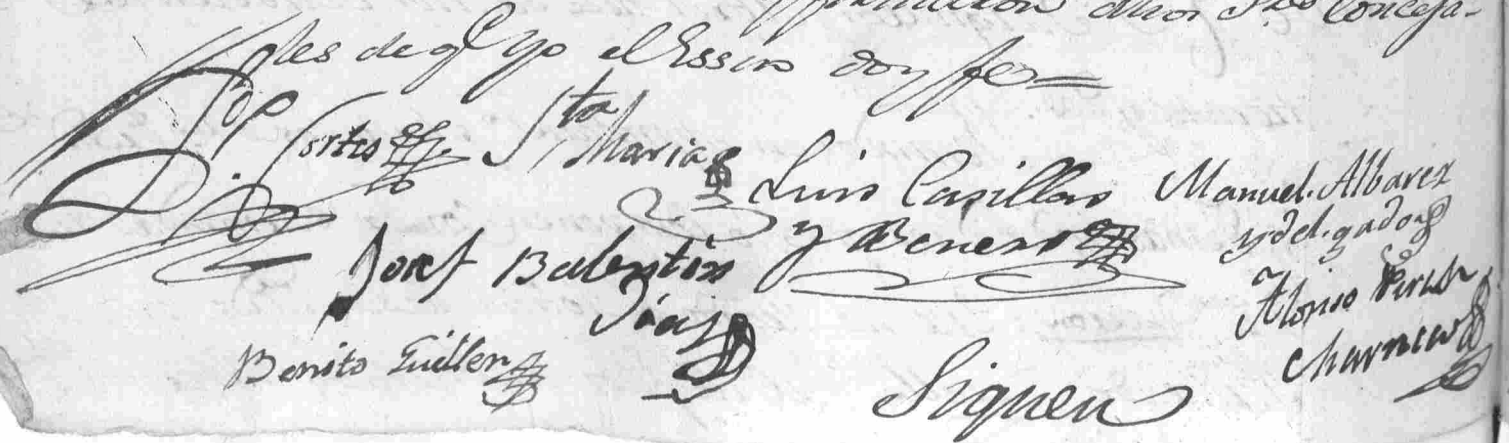 dhos Sres Conceja-
les de qe yo el Essno doy fee=
Cortes
Sta Maria
Luis Casillas
y Benero
Manuel Albarez
y delgado
Josef Balentin
Diaz
Alonso
Charneco
Benito Guillen
Siguen